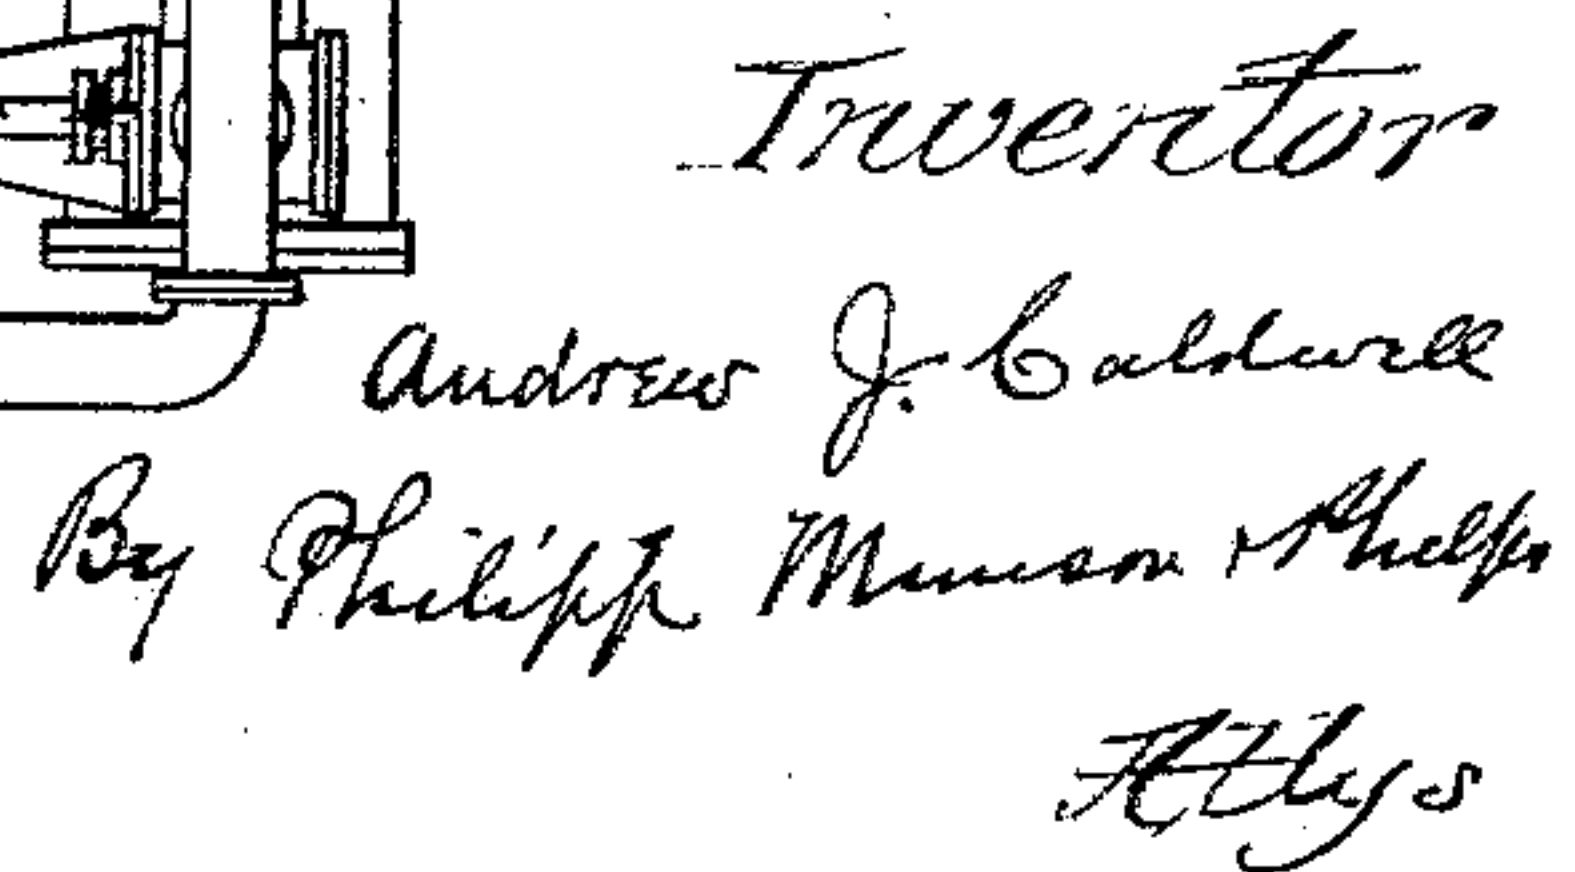 Inventor
Andrew J. Caldwell
By Philipp Munson & Phelps
Attys